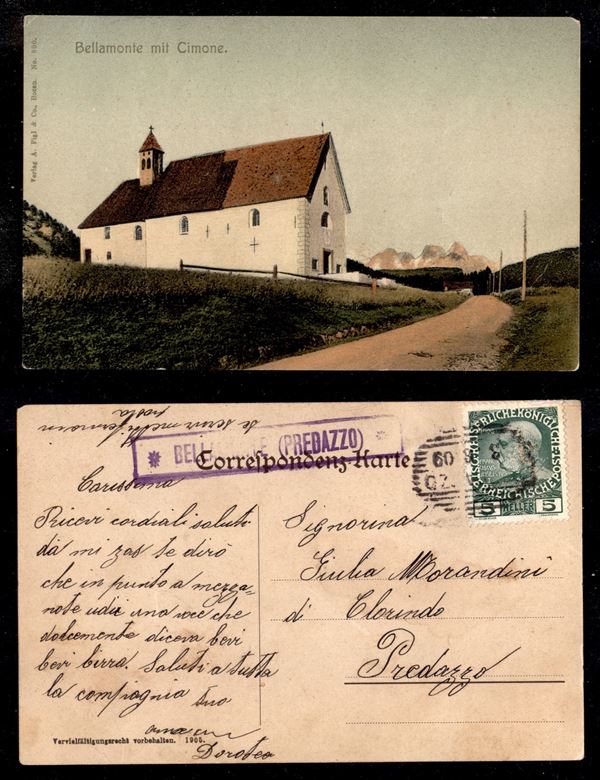 Bellamonte mit Cimone.
Verlag A. Figl & Co., Bozen. No. 890.
BELLAMONTE (PREDAZZO)
Correspondenz-Karte
09
5 HELLER 5
Carissima
Ricevi cordiali saluti
da mi zas te dirò
che in punto a mezza-
note udii una voce che
dolcemente diceva bevi
bevi birra. Saluti a tutta
la compagnia tuo
Dorotea
Signorina
Giulia Morandini
di Clorindo
Predazzo
Vervielfältigungsrecht vorbehalten. 1905.